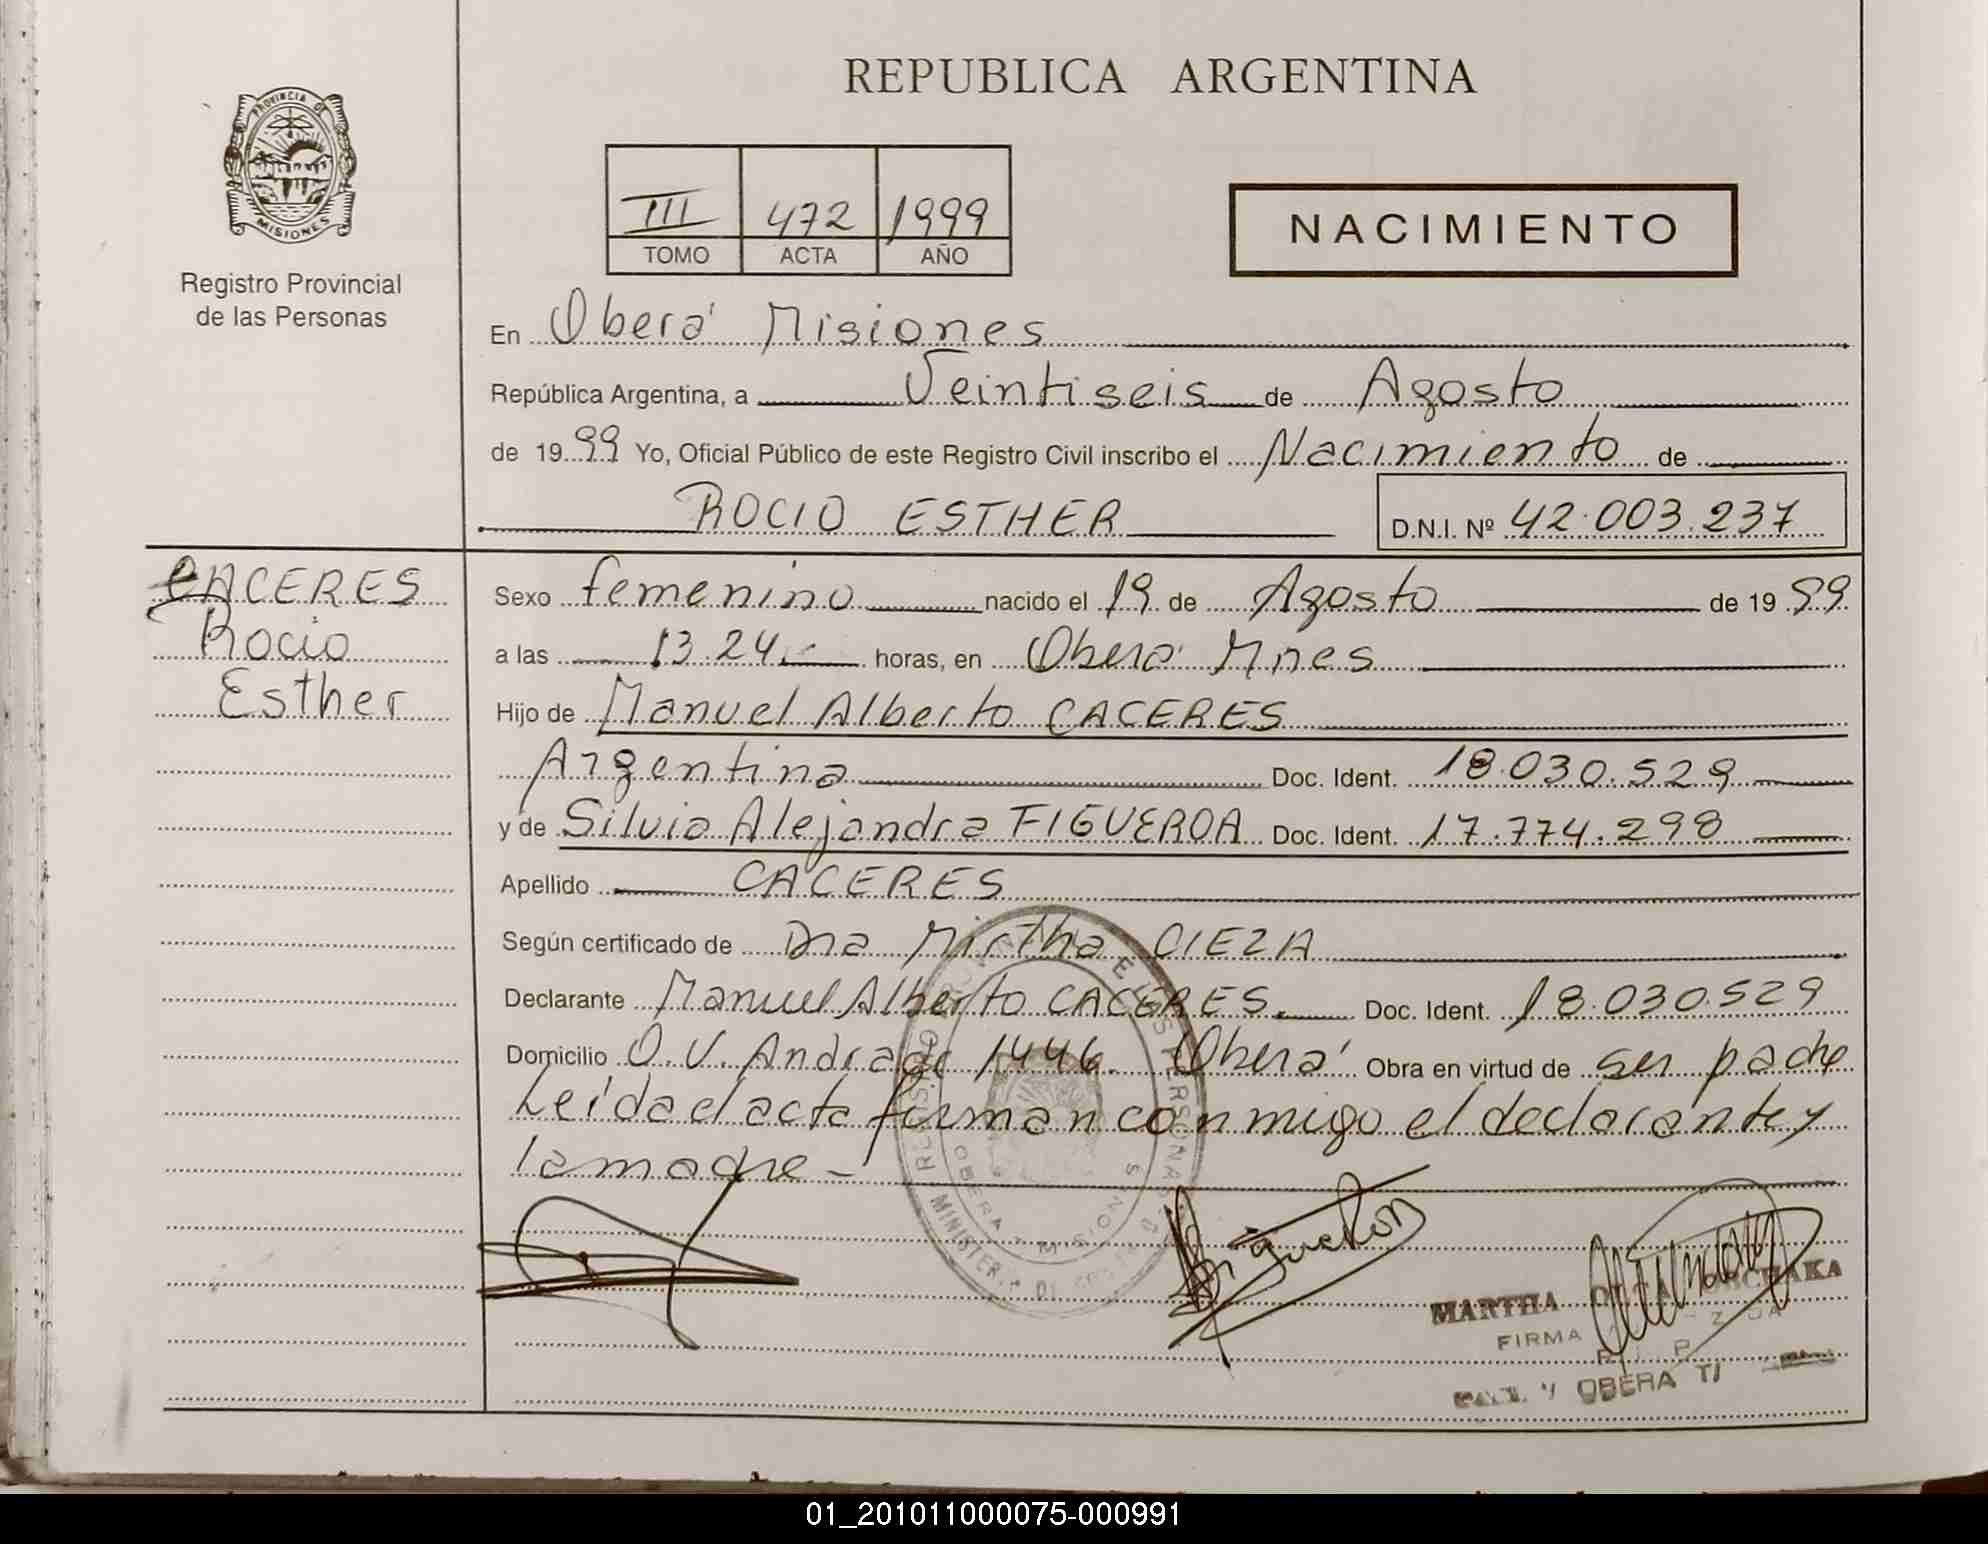 REPUBLICA ARGENTINA
PROVINCIA DE
MISIONES
Registro Provincial
de las Personas
III 472 1999
TOMO ACTA AÑO
NACIMIENTO
En Oberá Misiones
República Argentina, a Veintiseis de Agosto
de 1999 Yo, Oficial Público de este Registro Civil inscribo el Nacimiento de
ROCIO ESTHER D.N.I. Nº 42.003.237
CACERES
Rocio
Esther
Sexo femenino nacido el 19 de Agosto de 1999
a las 13.24 horas, en Oberá Mnes
Hijo de Manuel Alberto CACERES
Argentina Doc. Ident. 18.030.529
y de Silvia Alejandra FIGUEROA Doc. Ident. 17.774.298
Apellido CACERES
Según certificado de Dra Mirtha CIEZA
Declarante Manuel Alberto CACERES. Doc. Ident. 18.030.529
Domicilio O.V. Andrade 1446. Oberá Obra en virtud de ser padre
Leída el acta firman conmigo el declarante y
la madre -
REGISTRO PERSONAS
OBERA MISIONES
MARTHA
FIRMA
OBERA
01_201011000075-000991